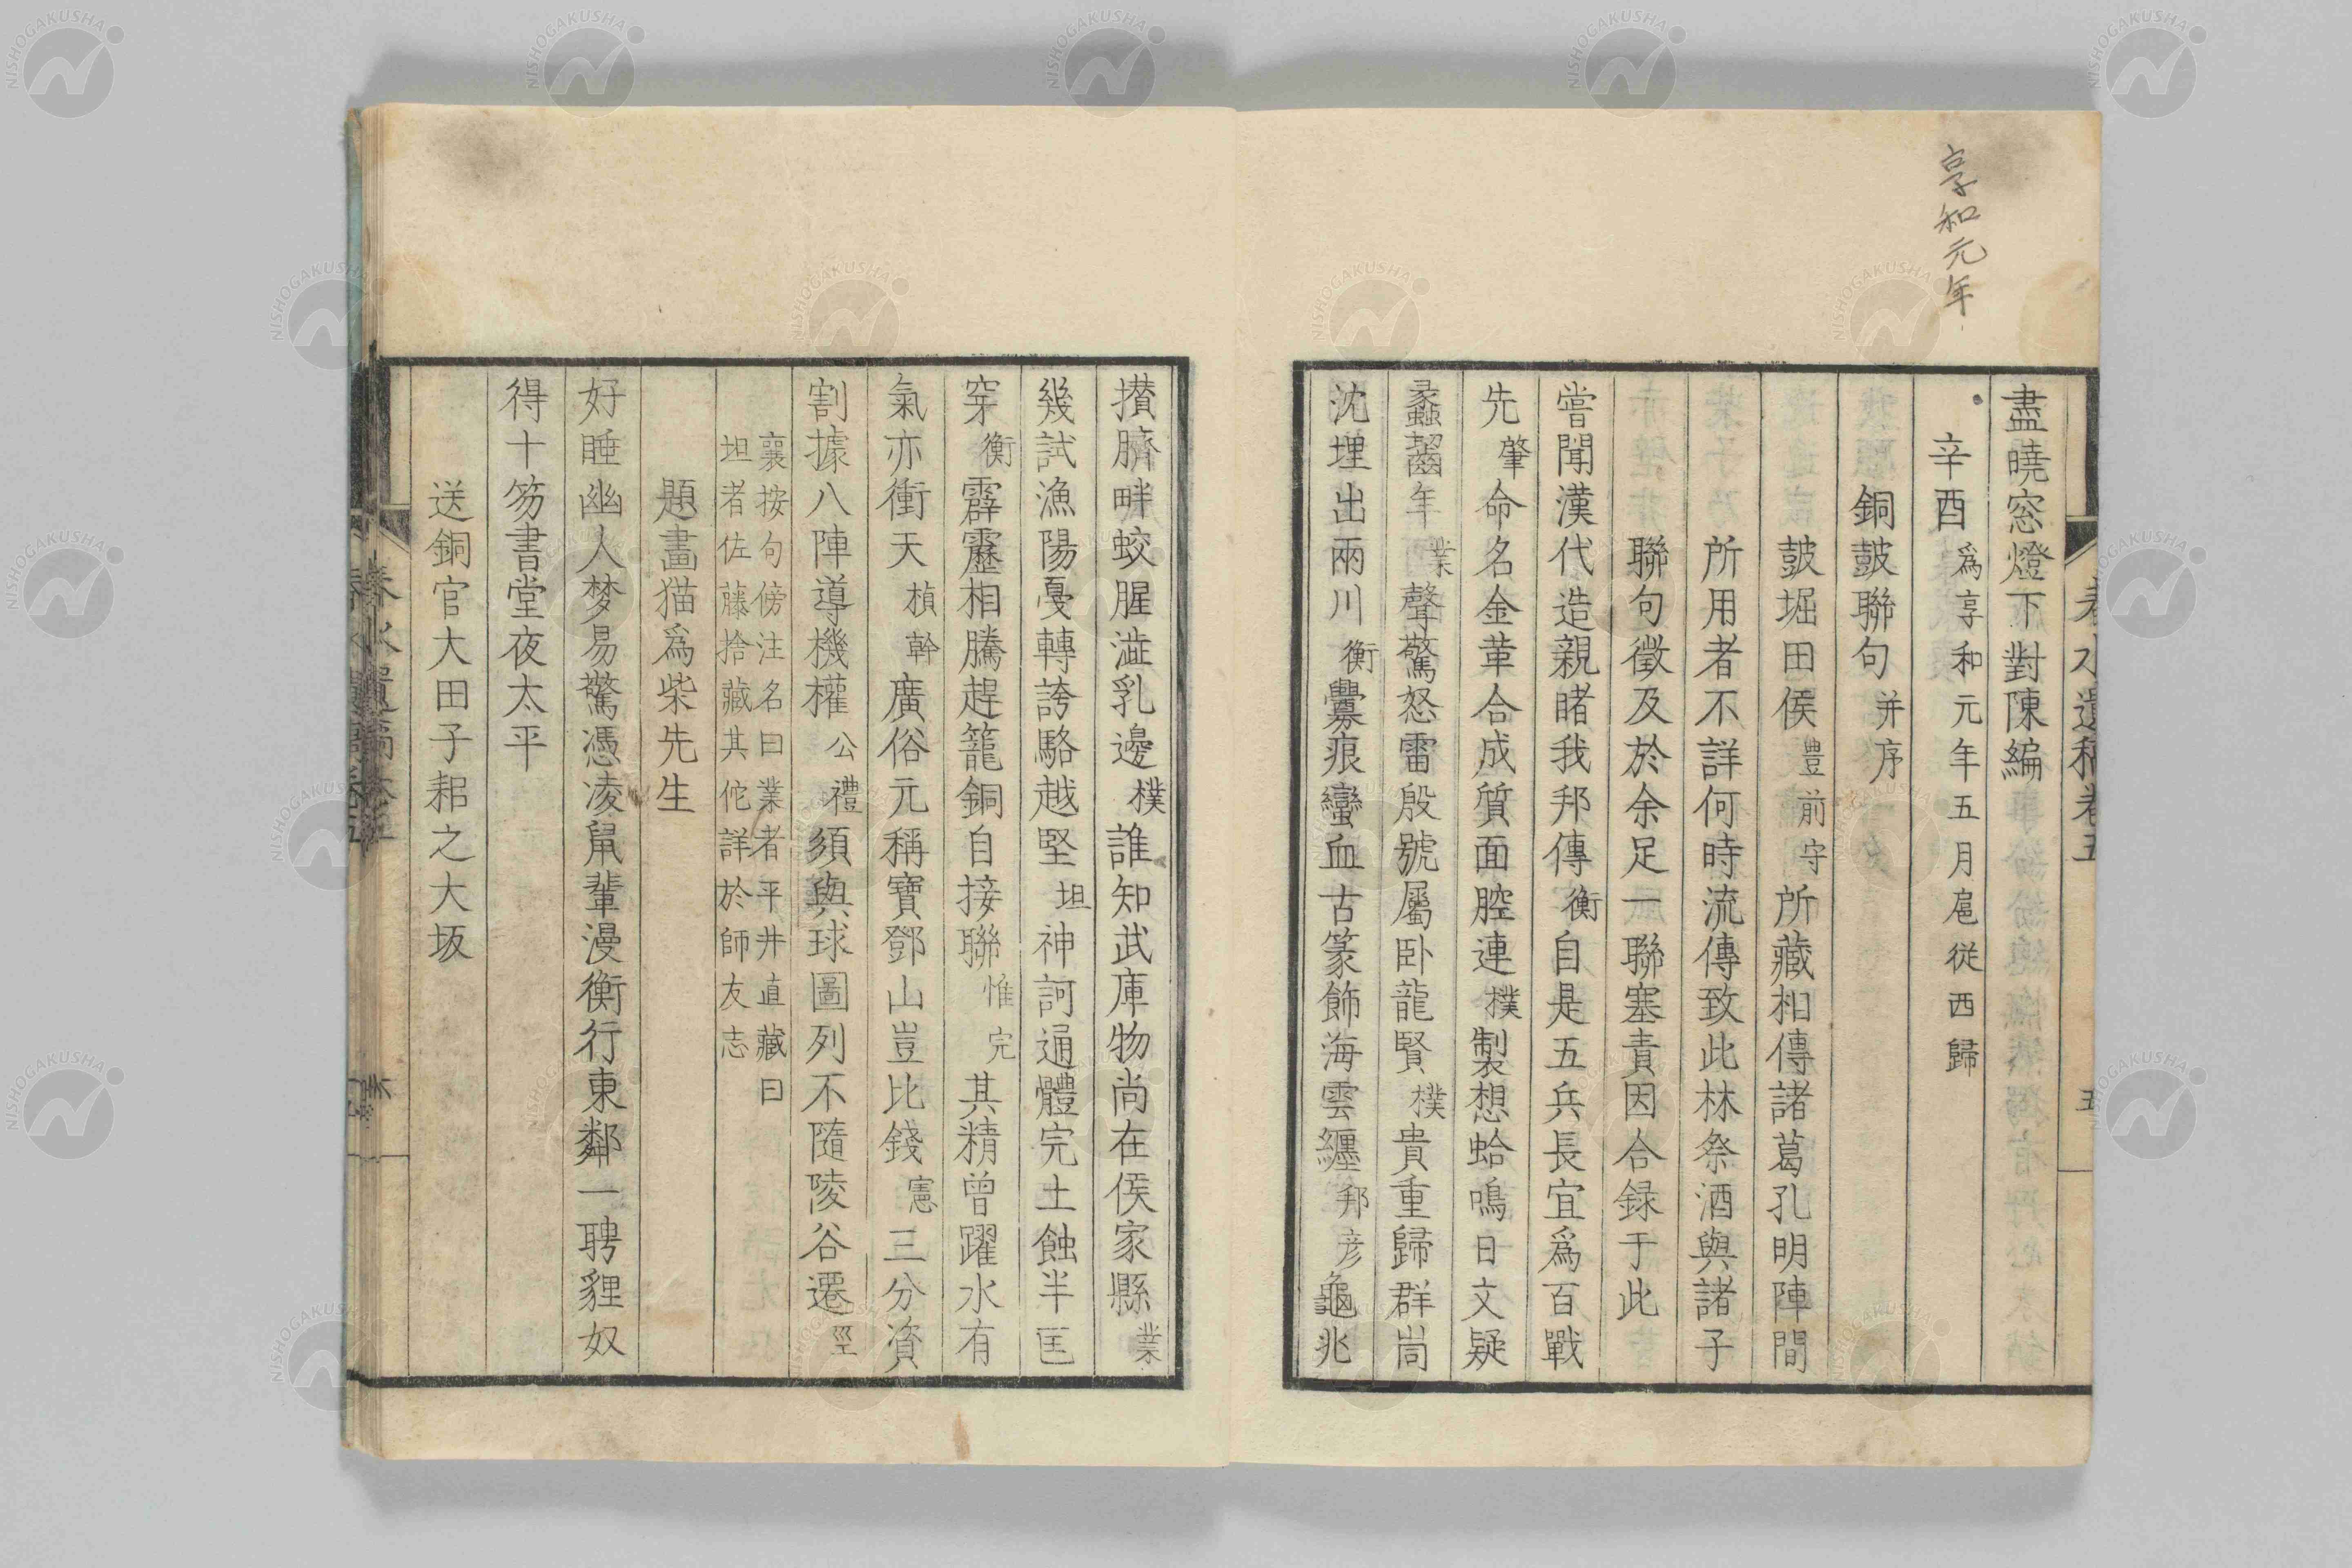 享和元年
春水遺稿卷五
五
盡曉窓燈下對陳編
辛酉 爲享和元年五月扈從西歸
銅鼓聯句 并序
鼓堀田侯 豊前守 所藏相傳諸葛孔明陣間
所用者不詳何時流傳致此林祭酒與諸子
聯句徵及於余足一聯塞責因合録于此
嘗聞漢代造親睹我邦傳 衡 自是五兵長宜爲百戰
先 肇 命名金革合成質面腔連 樸 製想蛤鳴日文疑
蠡齧年 業 聲驚怒雷殷號屬臥龍賢 樸 貴重歸群峝
沈埋出兩川 衡 釁痕蠻血古篆飾海雲纏 邦彦 龜兆
攅臍畔蛟腥澁乳邊 樸 誰知武庫物尚在侯家縣 業
幾試漁陽戞轉誇駱越堅 坦 神訶通體完土蝕半匡
穿 衡 霹靂相騰趕籠銅自接聯 惟完 其精曾躍水有
氣亦衝天 楨幹 廣俗元稱寶鄧山豈比錢 憲 三分資
割據八陣導機權 公禮 須與球圖列不隨陵谷遷 坙
襄按句傍注名曰業者平井直藏曰
坦者佐藤捨藏其佗詳於師友志
題畫猫爲柴先生
好睡幽人梦易驚憑凌鼠輩漫衡行東鄰一聘貍奴
得十笏書堂夜太平
送銅官大田子耜之大坂
NISHOGAKUSHA